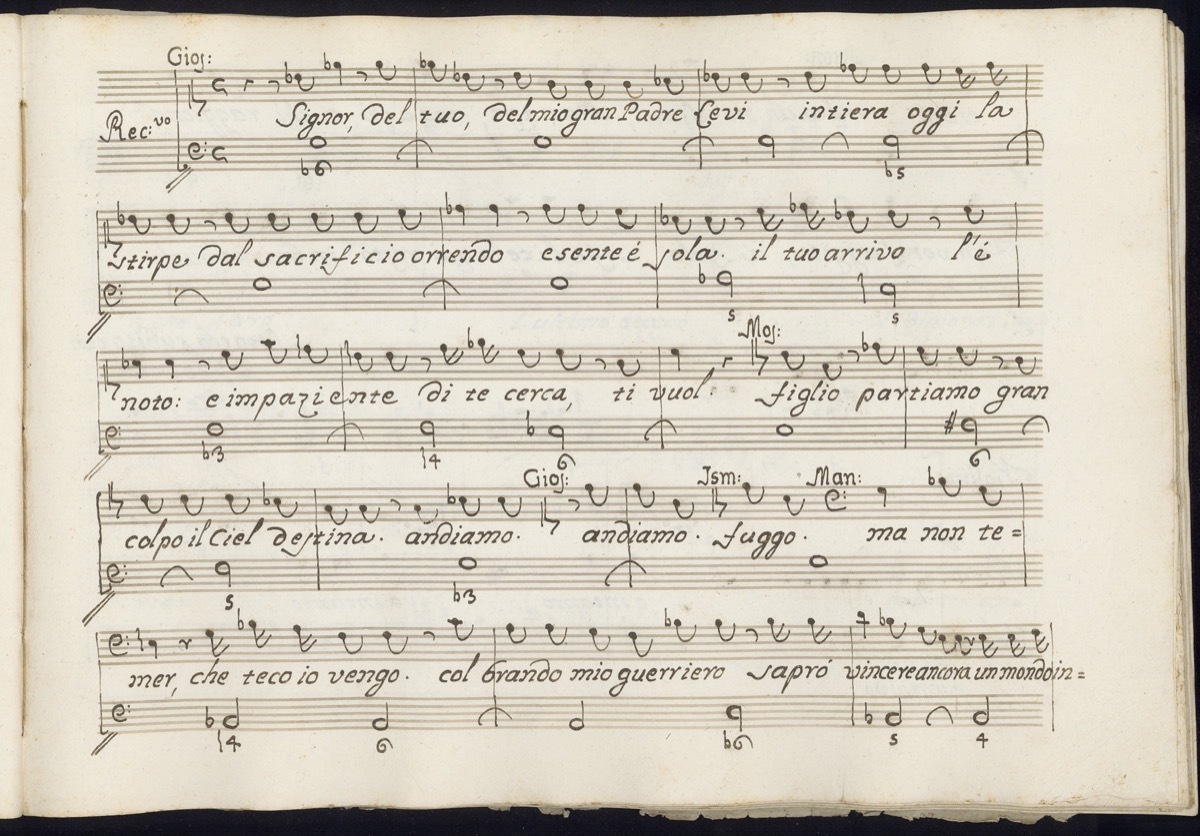 Gios:
Rec:vo
Signor, del tuo, del mio gran Padre Levi intiera oggi la
b6 b5
stirpe dal sacrificio orrendo esente é sola. il tuo arrivo l'é
5 5
Mos:
noto: e impaziente di te cerca, ti vuol. figlio partiamo gran
b3 14 6 6
Gios: Ism: Man:
colpo il Ciel destina. andiamo. andiamo. fuggo. ma non te=
5 b3
mer, che teco io vengo. col brando mio guerriero sapró vincere ancora un mondo in=
14 6 b6 5 4